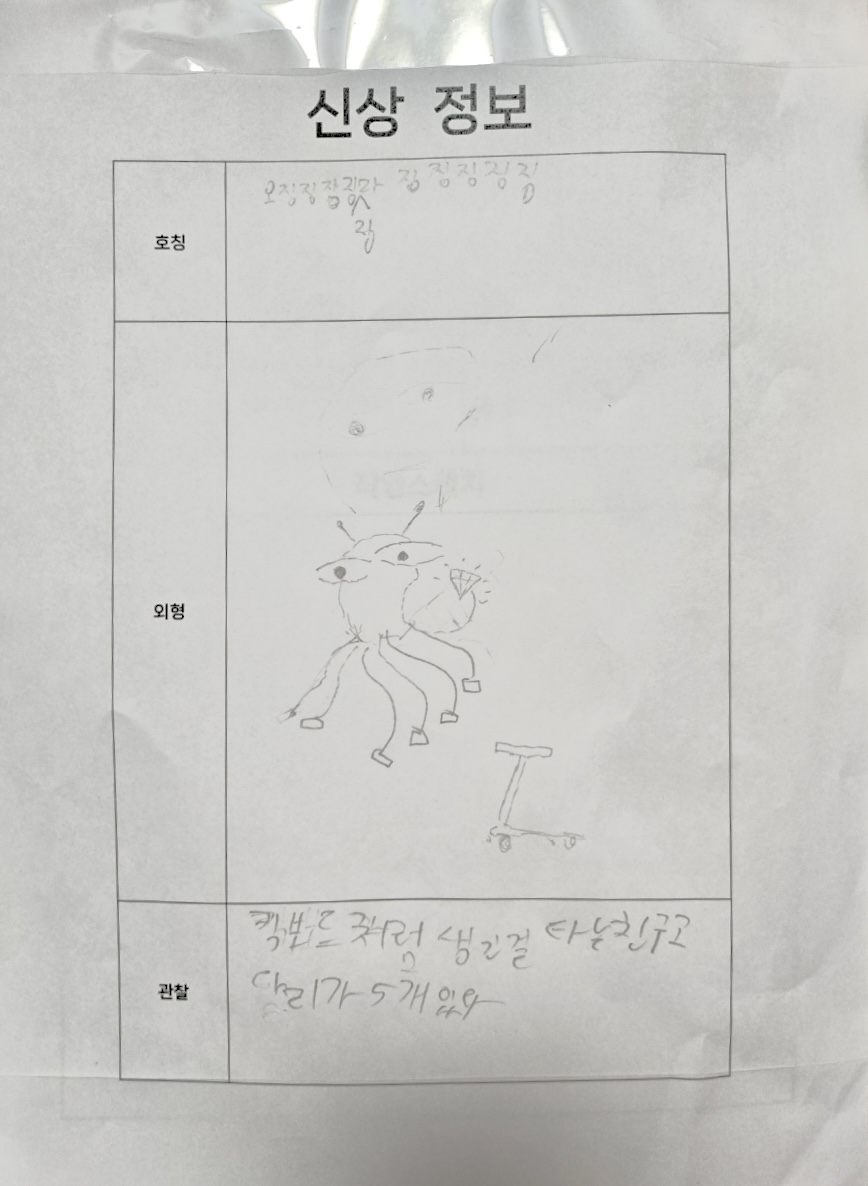 신상 정보
호칭
오징징잠징마 징 징징징징
징
외형
관찰
킥보드 처럼 생긴걸 타는친구고
달리가 5개 있와